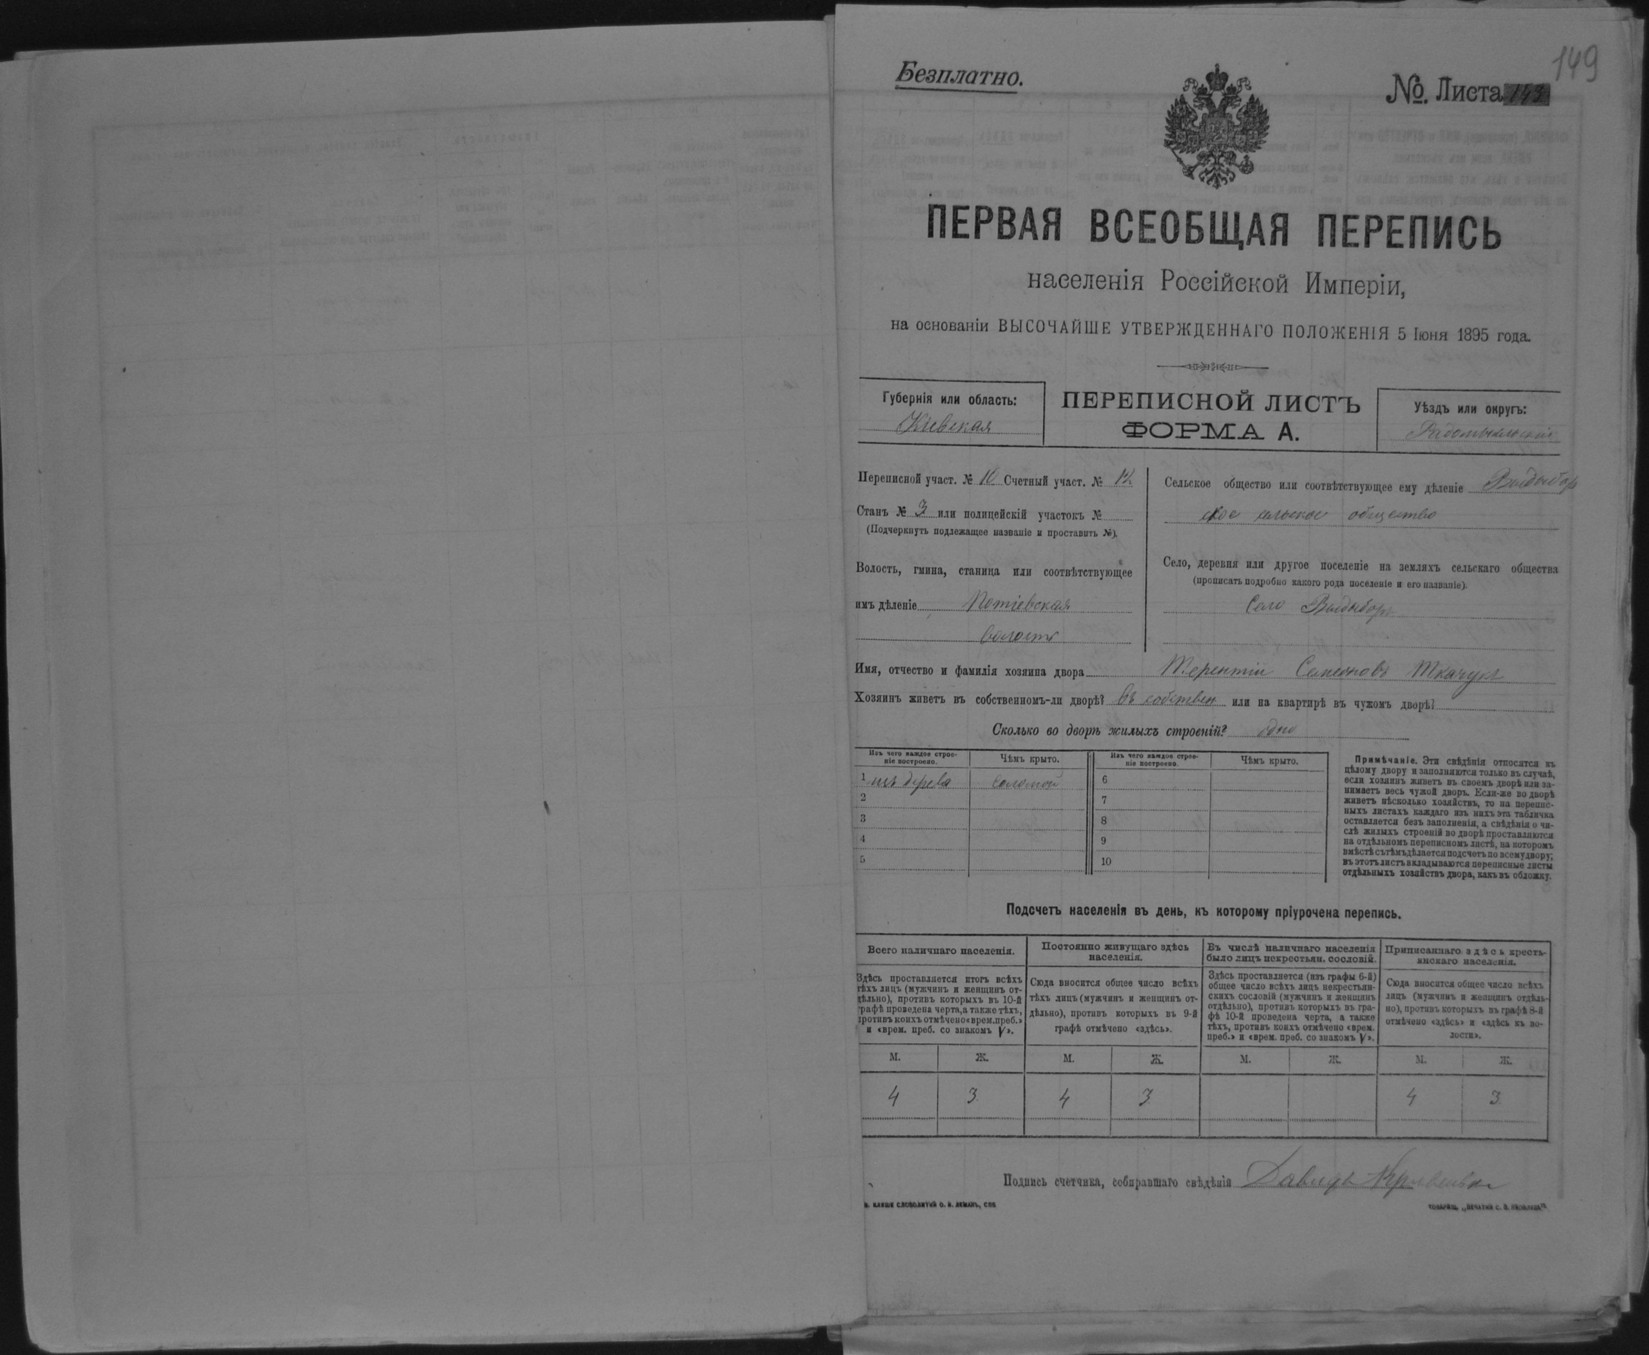 149
Безплатно.
№. Листа 143
ПЕРВАЯ ВСЕОБЩАЯ ПЕРЕПИСЬ
населенія Россійской Имперіи,
на основаніи ВЫСОЧАЙШЕ УТВЕРЖДЕННАГО ПОЛОЖЕНІЯ 5 Іюня 1895 года.
Губернія или область:
Кіевская
ПЕРЕПИСНОЙ ЛИСТЪ
ФОРМА А.
Уѣздъ или округъ:
Радомысльскій
Переписной участ. № 10 Счетный участ. № 12
Станъ № 3 или полицейскій участокъ №
(Подчеркнуть подлежащее названіе и проставить №).
Волость, гмина, станица или соотвѣтствующее
имъ дѣленіе Потіевская
волость
Сельское общество или соотвѣтствующее ему дѣленіе Выдыбор
ское сельское общество
Село, деревня или другое поселеніе на земляхъ сельскаго общества
(прописать подробно какого рода поселеніе и его названіе).
Село Выдыборъ
Имя, отчество и фамилія хозяина двора Терентій Семеновъ Ткачукъ
Хозяинъ живетъ въ собственномъ-ли дворѣ? въ собствен или на квартирѣ въ чужомъ дворѣ?
Сколько во дворѣ жилыхъ строеній? одно
Изъ чего каждое строе-
ніе построено.
Чѣмъ крыто.
Изъ чего каждое строе-
ніе построено.
Чѣмъ крыто.
1 изъ дерева соломой 6
2 7
3 8
4 9
5 10
Примѣчаніе. Эти свѣдѣнія относятся къ
цѣлому двору и заполняются только въ случаѣ,
если хозяинъ живетъ въ своемъ дворѣ или за-
нимаетъ весь чужой дворъ. Если-же во дворѣ
живетъ нѣсколько хозяйствъ, то на перепис-
ныхъ листахъ каждаго изъ нихъ эта табличка
оставляется безъ заполненія, а свѣдѣнія о чи-
слѣ жилыхъ строеній во дворѣ проставляются
на отдѣльномъ переписномъ листѣ, на которомъ
вмѣстѣ съ тѣмъ дѣлается подсчетъ по всему двору;
въ этотъ листъ вкладываются переписные листы
отдѣльныхъ хозяйствъ двора, какъ въ обложку.
Подсчетъ населенія въ день, къ которому пріурочена перепись.
Всего наличнаго населенія.
Здѣсь проставляется итогъ всѣхъ
тѣхъ лицъ (мужчинъ и женщинъ от-
дѣльно), противъ которыхъ въ 10-й
графѣ проведена черта, а также тѣхъ,
противъ коихъ отмѣчено «врем. преб.»
и «врем. преб. со знакомъ V».
Постоянно живущаго здѣсь
населенія.
Сюда вносится общее число всѣхъ
тѣхъ лицъ (мужчинъ и женщинъ от-
дѣльно), противъ которыхъ въ 9-й
графѣ отмѣчено «здѣсь».
Въ числѣ наличнаго населенія
было лицъ некрестьян. сословій.
Здѣсь проставляется (изъ графы 6-й)
общее число всѣхъ лицъ некрестьян-
скихъ сословій (мужчинъ и женщинъ
отдѣльно), противъ которыхъ въ гра-
фѣ 10-й проведена черта, а также
тѣхъ, противъ коихъ отмѣчено «врем.
преб.» и «врем. преб. со знакомъ V».
Приписаннаго здѣсь кресть-
янскаго населенія.
Сюда вносится общее число всѣхъ
лицъ (мужчинъ и женщинъ отдѣль-
но), противъ которыхъ въ графѣ 8-й
отмѣчено «здѣсь» и «здѣсь въ во-
лости».
М. Ж. М. Ж. М. Ж. М. Ж.
4 3 4 3 4 3
Подпись счетчика, собиравшаго свѣдѣнія Давидъ